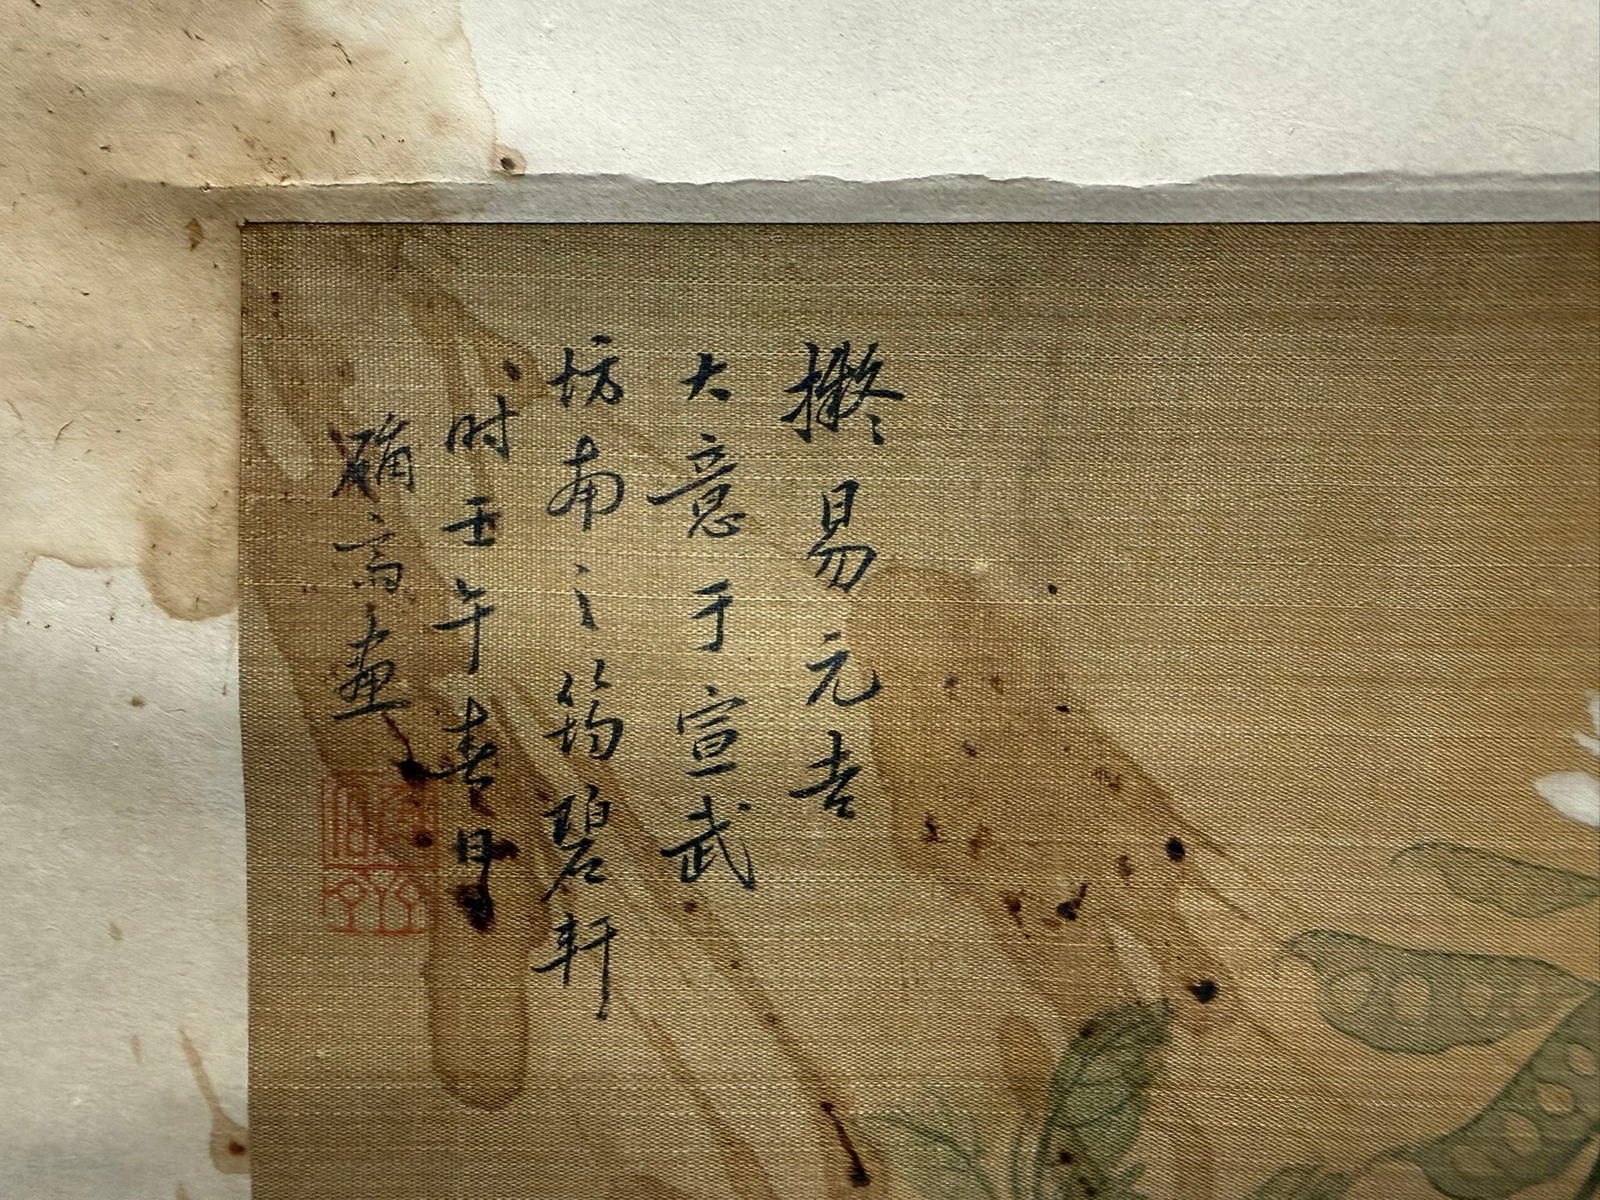 擬易元吉
大意于宣武
坊南之筠碧軒
时壬午春日
确斋畫